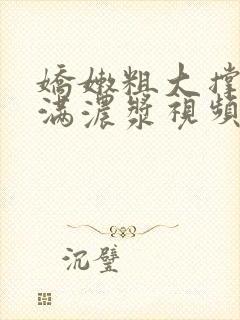 嬌嫩粗大撐
滿濃漿視頻
沉璧